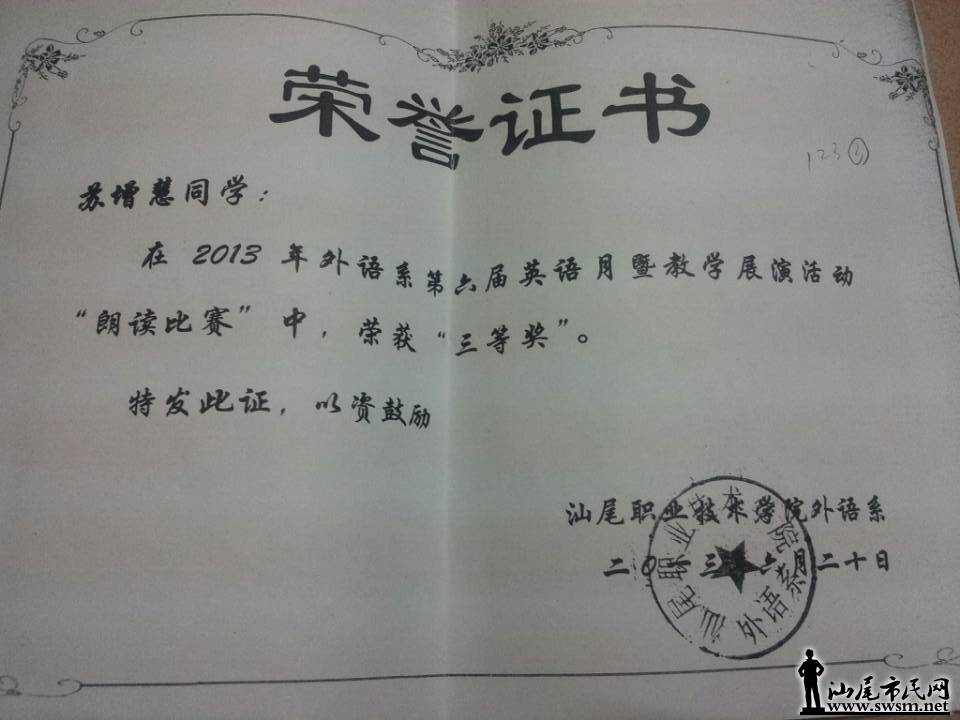 荣誉证书
123③
苏增慧同学：
在 2013 年外语系第六届英语月暨教学展演活动
“朗读比赛”中，荣获“三等奖”。
特发此证，以资鼓励
汕尾职业技术学院外语系
二〇一三年六月二十日
汕尾职业技术学院
外语系
汕尾市民网
www.swsm.net